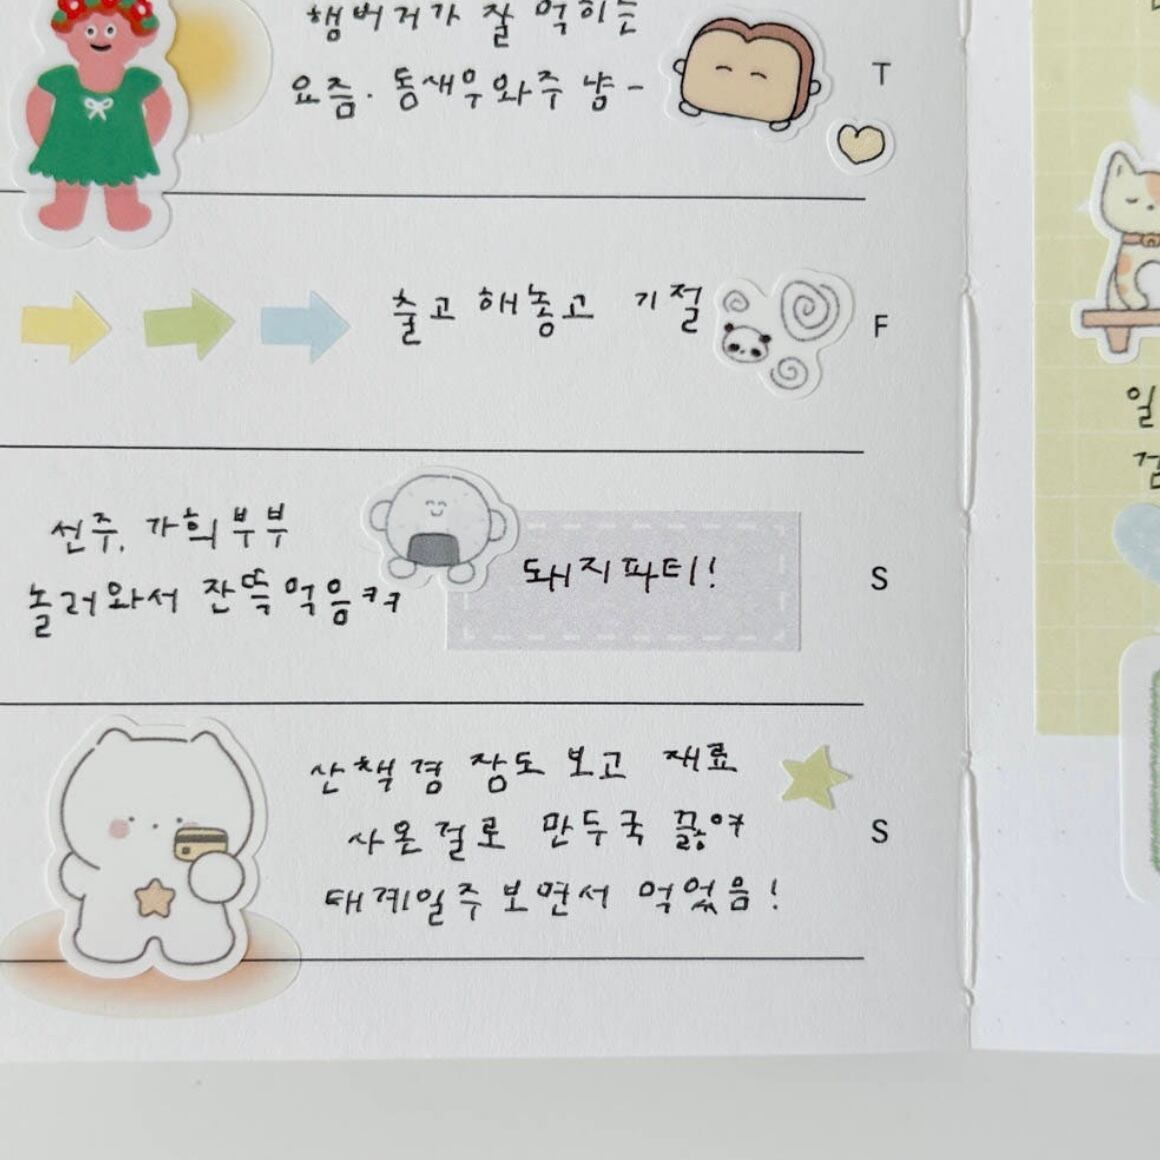 햄버거가 잘 먹히는
요즘. 통새우와주 냠-
T
출고 해놓고 기절
F
선주, 가희부부
놀러와서 잔뜩 먹음ㅋㅋ
돼지파티!
S
산책겸 장도 보고 재료
사온걸로 만두국 끓여
태계일주 보면서 먹었음!
S
일